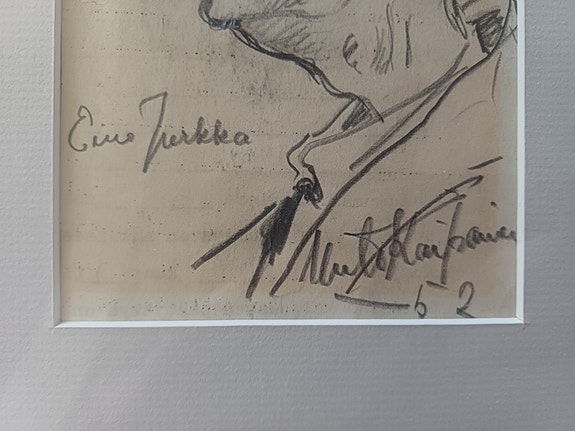 Eino Jurkka
Unto Kaipainen
52